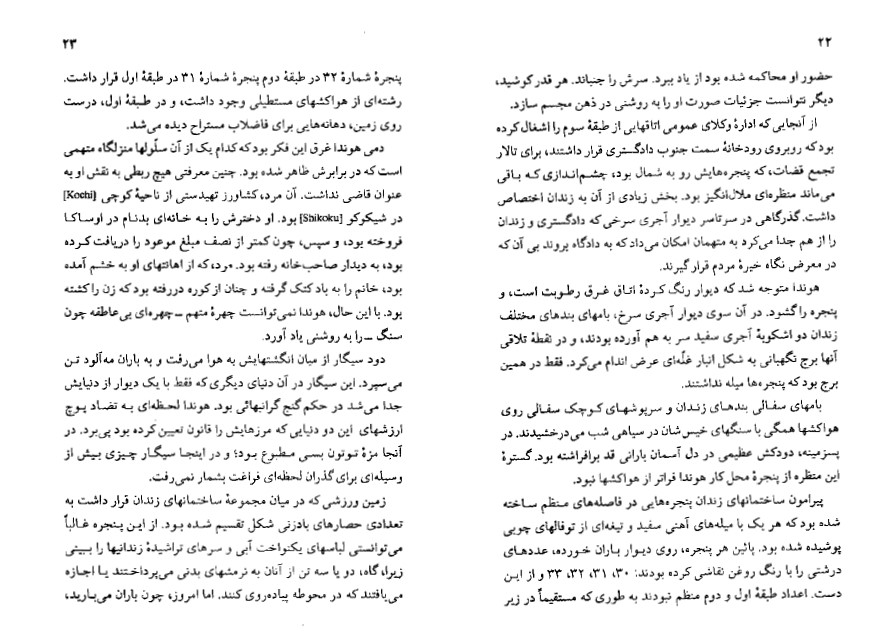 ۲۲
حضور او محاکمه شده بود از یاد ببرد. سرش را جنباند. هر قدر کوشید،
دیگر نتوانست جزئیات صورت او را به روشنی در ذهن مجسم سازد.
از آنجایی که ادارهٔ وکلای عمومی اتاقهایی از طبقهٔ سوم را اشغال کرده
بود که روبروی رودخانهٔ سمت جنوب دادگستری قرار داشتند، برای تالار
تجمع قضات، که پنجره‌هایش رو به شمال بود، چشم‌اندازی که باقی
می‌ماند منظره‌ای ملال‌انگیز بود. بخش زیادی از آن به زندان اختصاص
داشت. گذرگاهی در سرتاسر دیوار آجری سرخی که دادگستری و زندان
را از هم جدا می‌کرد به متهمان امکان می‌داد که به دادگاه بروند بی آن که
در معرض نگاه خیرهٔ مردم قرار گیرند.
هوندا متوجه شد که دیوار رنگ کردهٔ اتاق غرق رطوبت است، و
پنجره را گشود. در آن سوی دیوار آجری سرخ، بامهای بندهای مختلف
زندان دو اشکوبهٔ آجری سفید سر به هم آورده بودند، و در نقطهٔ تلاقی
آنها برج نگهبانی به شکل انبار غلّه‌ای عرض اندام می‌کرد. فقط در همین
برج بود که پنجره‌ها میله نداشتند.
بامهای سفالی بندهای زندان و سرپوشهای کوچک سفالی روی
هواکشها همگی با سنگهای خیس‌شان در سیاهی شب می‌درخشیدند. در
پسزمینه، دودکش عظیمی در دل آسمان بارانی قد برافراشته بود. گسترهٔ
این منظره از پنجرهٔ محل کار هوندا فراتر از هواکشها نبود.
پیرامون ساختمانهای زندان پنجره‌هایی در فاصله‌های منظم ساخته
شده بود که هر یک با میله‌های آهنی سفید و تیغه‌ای از توفالهای چوبی
پوشیده شده بود. پائین هر پنجره، روی دیوار باران خورده، عددهای
درشتی را با رنگ روغن نقاشی کرده بودند: ۳۰، ۳۱، ۳۲، ۳۳ و از این
دست. اعداد طبقهٔ اول و دوم منظم نبودند به طوری که مستقیماً در زیر
۲۳
پنجرهٔ شمارهٔ ۳۲ در طبقهٔ دوم پنجرهٔ شمارهٔ ۳۱ در طبقهٔ اول قرار داشت.
رشته‌ای از هواکشهای مستطیلی وجود داشت، و در طبقهٔ اول، درست
روی زمین، دهانه‌هایی برای فاضلاب مستراح دیده می‌شد.
دمی هوندا غرق این فکر بود که کدام یک از آن سلّولها منزلگاه متهمی
است که در برابرش ظاهر شده بود. چنین معرفتی هیچ ربطی به نقش او به
عنوان قاضی نداشت. آن مرد، کشاورز تهیدستی از ناحیهٔ کوچی [Kochi]
در شیکوکو [Shikoku] بود. او دخترش را به خانه‌ای بدنام در اوساکا
فروخته بود، و سپس، چون کمتر از نصف مبلغ موعود را دریافت کرده
بود، به دیدار صاحب‌خانه رفته بود. مرد، که از اهانتهای او به خشم آمده
بود، خانم را به باد کتک گرفته و چنان از کوره دررفته بود که زن را کشته
بود. با این حال، هوندا نمی‌توانست چهرهٔ متهم ــ چهره‌ای بی‌عاطفه چون
سنگ ــ را به روشنی یاد آورد.
دود سیگار از میان انگشتهایش به هوا می‌رفت و به باران مه‌آلود تن
می‌سپرد. این سیگار در آن دنیای دیگری که فقط با یک دیوار از دنیایش
جدا می‌شد در حکم گنج گرانبهائی بود. هوندا لحظه‌ای به تضاد پوچ
ارزشهای این دو دنیایی که مرزهایش را قانون تعیین کرده بود پی‌برد. در
آنجا مزهٔ توتون بسی مطبوع بود؛ و در اینجا سیگار چیزی بیش از
وسیله‌ای برای گذران لحظه‌ای فراغت بشمار نمی‌رفت.
زمین ورزشی که در میان مجموعهٔ ساختمانهای زندان قرار داشت به
تعدادی حصارهای بادزنی شکل تقسیم شده بود. از این پنجره غالباً
می‌توانستی لباسهای یکنواخت آبی و سرهای تراشیدهٔ زندانیها را ببینی
زیرا، گاه، دو یا سه تن از آنان به نرمشهای بدنی می‌پرداختند یا اجازه
می‌یافتند که در محوطه پیاده‌روی کنند. اما امروز، چون باران می‌بارید،